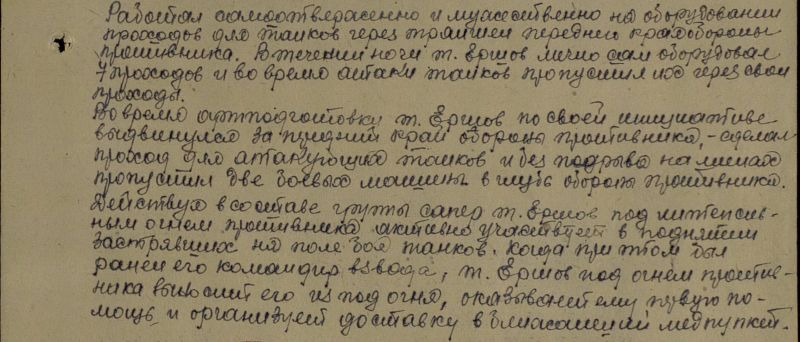 Работал самоотверженно и мужественно на оборудовании
проходов для танков через траншеи переднего края обороны
противника. В течении ночи т. Ершов лично сам оборудовал
7 проходов и во время атаки танков пропустил их через свои
проходы.
Во время артподготовки т. Ершов по своей инициативе
выдвинулся за передний край обороны противника, - сделал
проход для атакующих танков и без подрыва на минах
пропустил две боевых машины в глубь обороны противника.
Действуя в составе группы сапер т. Ершов под интенсив-
ным огнем противника активно участвует в поднятии
застрявших на поле боя танков. Когда при этом был
ранен его командир взвода, т. Ершов под огнем против-
ника выносит его из под огня, оказывает ему первую по-
мощь и организует доставку в ближайший медпункт.